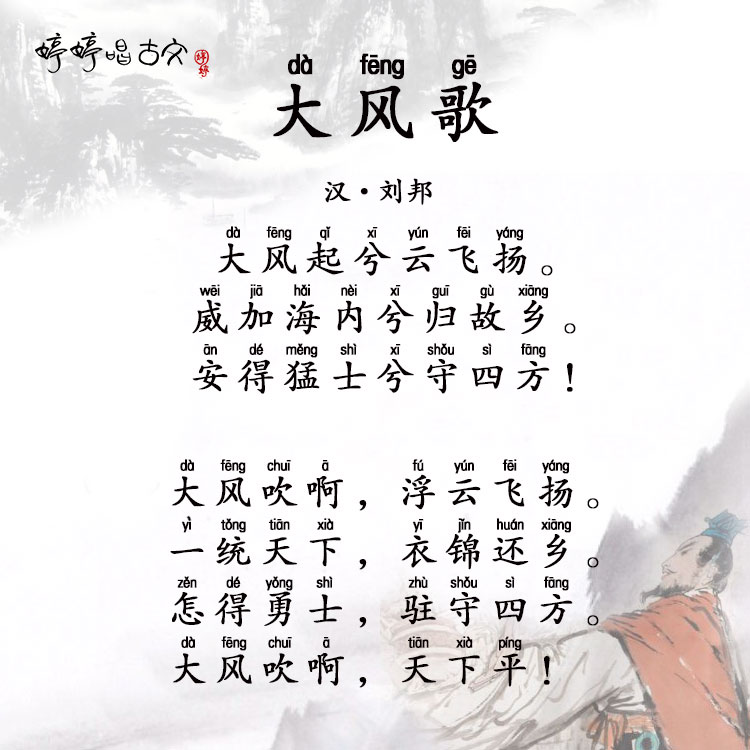 婷婷唱古文
婷婷
dà fēng gē
大风歌
汉·刘邦
dà fēng qǐ xī yún fēi yáng
大风起兮云飞扬。
wēi jiā hǎi nèi xī guī gù xiāng
威加海内兮归故乡。
ān dé měng shì xī shǒu sì fāng
安得猛士兮守四方！
dà fēng chuī ā fú yún fēi yáng
大风吹啊，浮云飞扬。
yì tǒng tiān xià yī jǐn huán xiāng
一统天下，衣锦还乡。
zěn dé yǒng shì zhù shǒu sì fāng
怎得勇士，驻守四方。
dà fēng chuī ā tiān xià píng
大风吹啊，天下平！